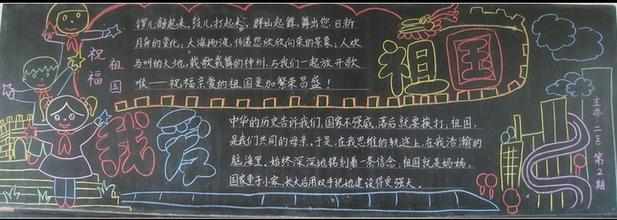 祝福
祖国
锣儿敲起来,鼓儿打起来,群山起舞,舞出您日新
月异的变化,大海两波,传遍您欣欣向荣的景象,人欢
马叫的大地,载歌载舞的神州,与我们一起放开歌
喉——祝福亲爱的祖国更加繁荣昌盛!
祖国
我爱
中华的历史告诉我们,国家不强盛,落后就要挨打,祖国,
是我们共同的母亲,于是,在我思维的轨迹上,在我浩瀚的
脑海里,始终深深地镌刻着一条信念,祖国就是妈妈,
国家妻子小家,长大后用双手把她建设得更强大。
主办二5
第2期